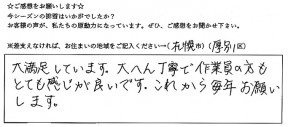 ☆ご感想をお願いします☆
今シーズンの排雪はいかがでしたか?
お客様の声が、私たちの原動力になっています。ぜひ、ご感想をお聞かせ下さい。
※差支えなければ、お住まいの地域をご記入ください→(札幌市)(厚別区)
大満足しています。大へん丁寧で作業員の方も
とても感じが良いです。これから毎年お願い
します。